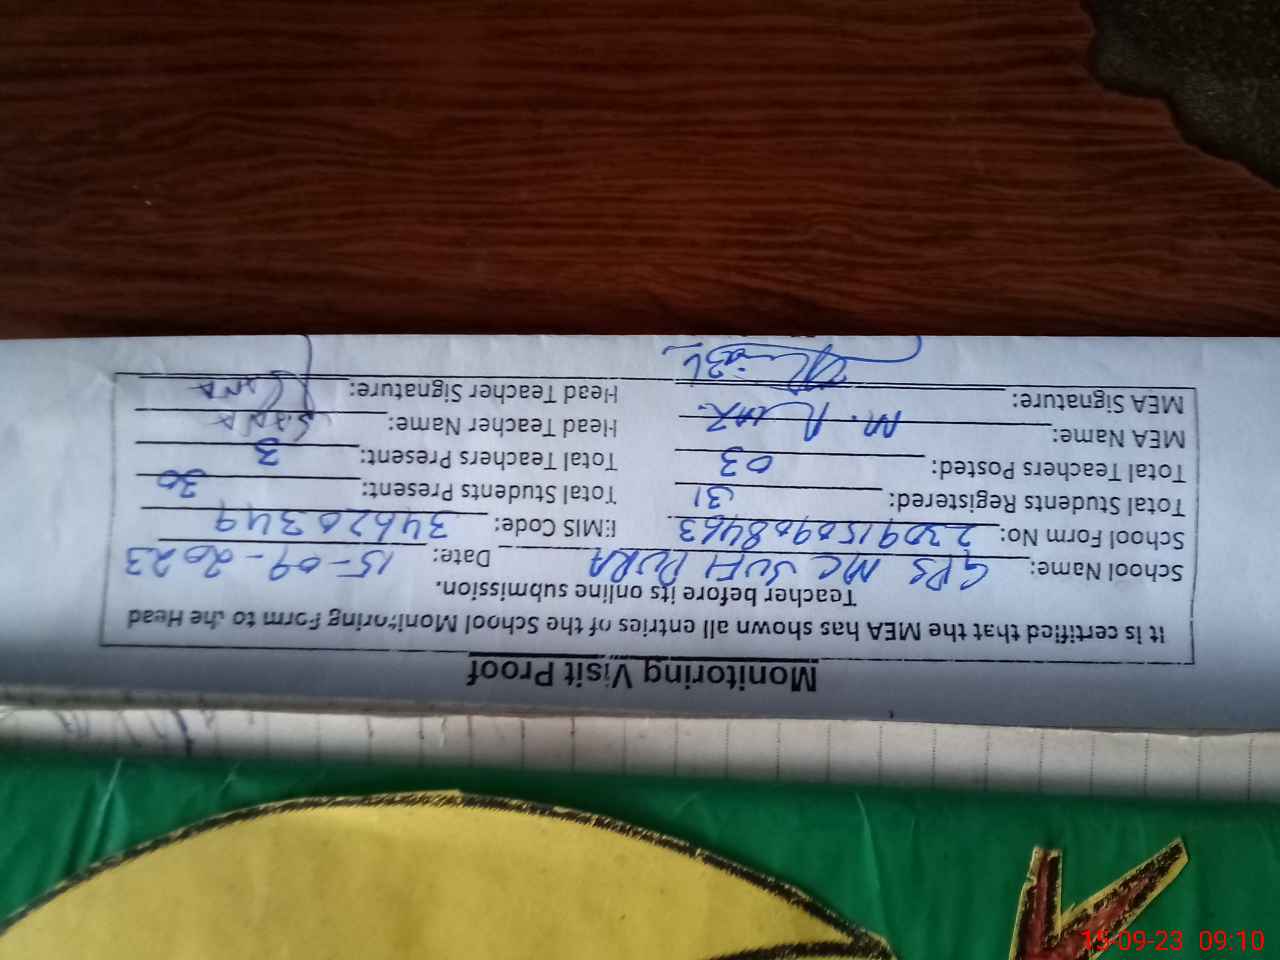 Monitoring Visit Proof
It is certified that the MEA has shown all entries of the School Monitoring Form to the Head
Teacher before its online submission.
School Name: GPS MC SUFI PURA Date: 15-09-2023
School Form No: 2309150908463 EMIS Code: 34620349
Total Students Registered: 31 Total Students Present: 30
Total Teachers Posted: 03 Total Teachers Present: 3
MEA Name: M. Riaz Head Teacher Name: SANA
MEA Signature: Head Teacher Signature: SANA
15-09-23 09:10